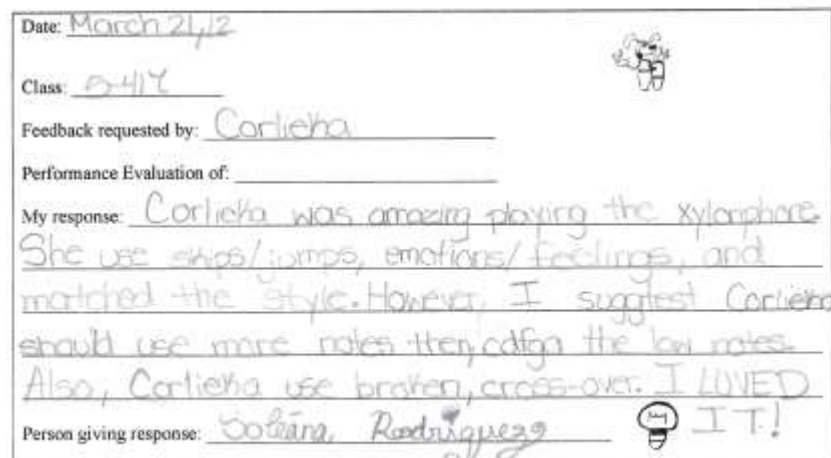 Date: March 21, 12
Class: 5-417
Feedback requested by: Corlieka
Performance Evaluation of:
My response: Corlieka was amazing playing the xylomphore.
She use skips/jumps, emotions/feelings, and
matched the style. However, I suggtest Corlieka
should use more notes then, cdfga the low notes.
Also, Corlieka use broken, cross-over. I LOVED
Person giving response: Rodriguez IT!